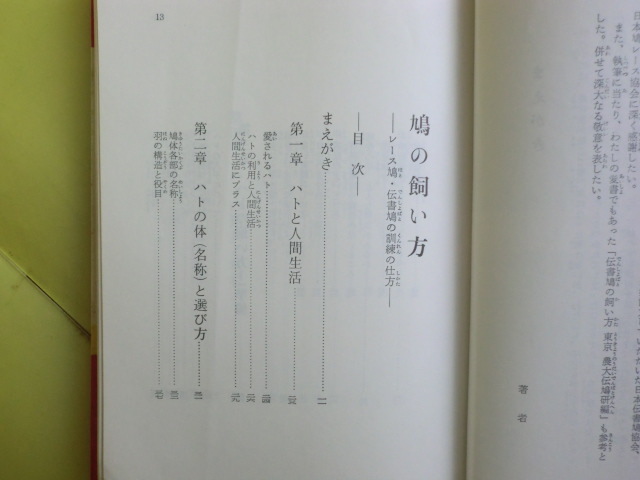 日本鳩レース協会に深く感謝したい。
また、執筆に当たり、わたしの蔵書でもあった『伝書鳩の飼い方 東京農大伝鳩研編』も参考と
した。併せて深大なる敬意を表したい。
著者
鳩の飼い方
――レース鳩・伝書鳩の訓練の仕方――
――目次――
まえがき
第一章 ハトと人間生活
愛されるハト
ハトの利用と人間生活
人間生活にプラス
第二章 ハトの体(名称)と選び方
鳩体各部の名称
羽の構造と役目
13